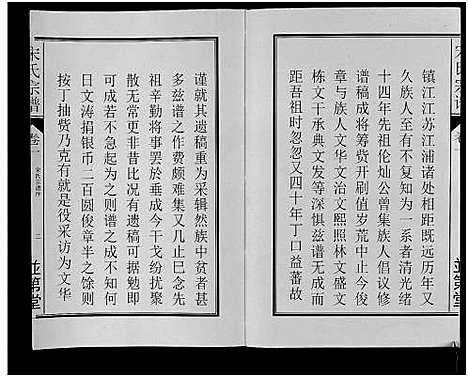 鎮江江苏江浦诸处相距既远历年又
久族人至有不复知为一系者清光绪
十四年先祖伦灿公曾集族人倡议修
谱稿成将筹费开刷值岁荒中止今俊
章与族人文华文治文熙照林文盛文
栋文干承典文发等深惧兹谱无成而
距吾祖时忽忽又四十年丁口益蕃故
谨就其遗稿重为采辑然族中贫者甚
多兹谱之作费颇难集又几止巳念先
祖辛勤将事罢於垂成今干戈纷扰聚
散无常更非昔比况有遗稿可据勉即
可成若不急起为之则谱之成不知何
日文涛捐银币二百圆俊章半之馀则
按丁抽赀乃克有就是役采访为文华
宋氏宗谱
卷一
並第堂